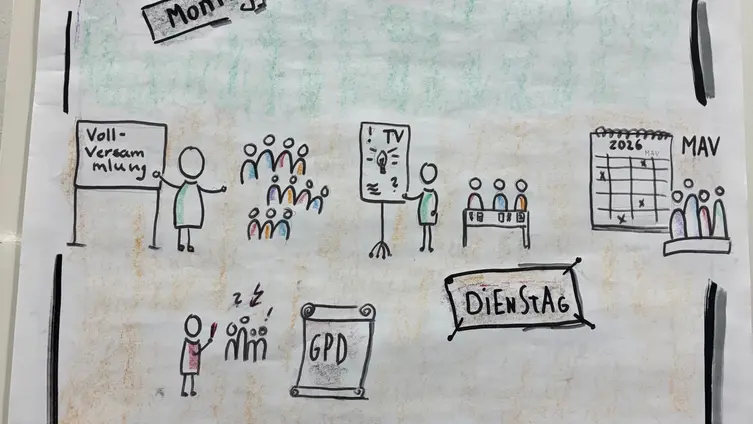 Voll-
Versam
mlung
! TV
?
2026
MAV
MAV
? !
GPD
DiENStAG